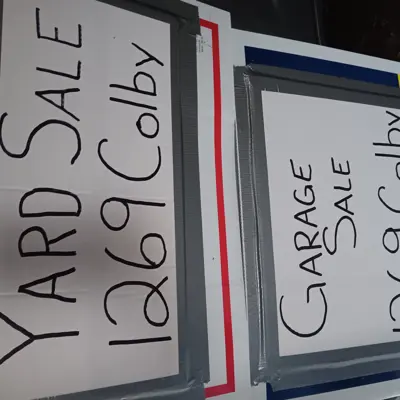 YARD SALE
1269 Colby
GARAGE
SALE
1269 Colby